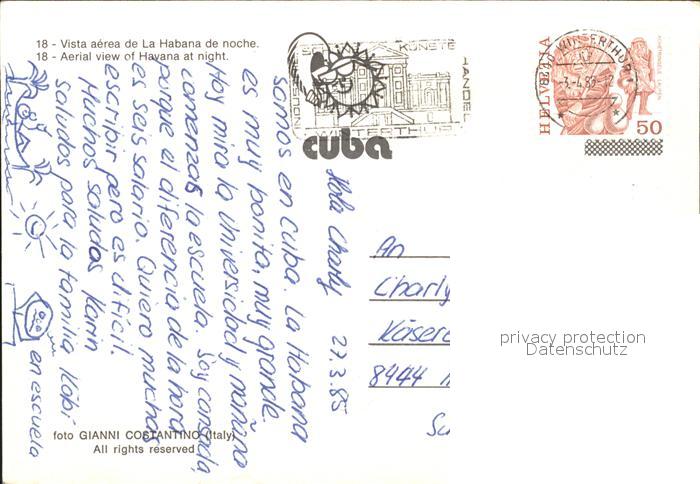 18 - Vista aérea de La Habana de noche.
18 - Aerial view of Havana at night.
KUNSTE
HANDEL
WINTERTHUR
cuba
HELVETIA
50
Hola Charly 27.3.85
somos en Cuba. La Habana
es muy bonita, muy grande.
Hoy mira la Universidad y mañana
comenzas la escuela. Soy cansada,
porque el diferencia de la hora
es seis salario. Quiero muchas
escribir pero es difícil.
Muchos saludos Karin
saludos para la familia Käpi
en escuela
An
Charly
Käsere
8444
foto GIANNI COSTANTINO (Italy)
All rights reserved
privacy protection
Datenschutz